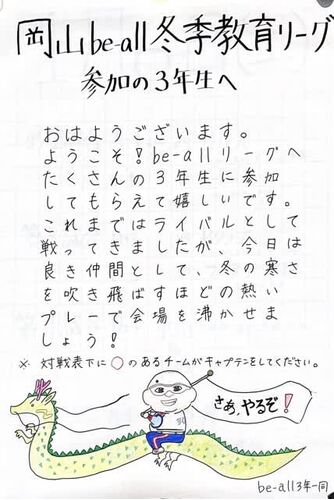 岡山be-all冬季教育リーグ
参加の3年生へ
おはようございます。
ようこそ!be-allリーグへ
たくさんの3年生に参加
してもらえて嬉しいです。
これまではライバルとして
戦ってきましたが、今日は
良き仲間として、冬の寒さ
を吹き飛ばすほどの熱い
プレーで会場を沸かせま
しょう!
※ 対戦表下に○のあるチームがキャプテンをしてください。
さあ、やるぞ!
be-all3年一同